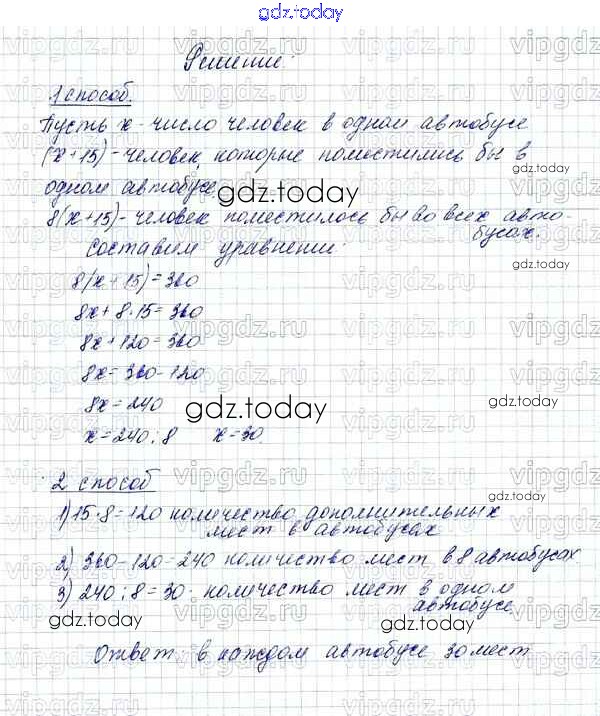 gdz.today
Решение:
1 способ.
Пусть x - число человек в одном автобусе
(x+15) - человек, которые поместились бы в
одном автобусе.
gdz.today
gdz.today
8(x+15) - человек поместилось бы во всех авто-
бусах.
составим уравнение:
gdz.today
8(x+15)=360
8x+8·15=360
8x+120=360
8x=360-120
8x=240
gdz.today
gdz.today
x=240:8 x=30
2 способ
1) 15·8=120 количество дополнительных
мест в автобусах
2) 360-120=240 количество мест в 8 автобусах
3) 240:8=30 - количество мест в одном
автобусе
gdz.today
gdz.today
Ответ: в каждом автобусе 30 мест
vipgdz.ru